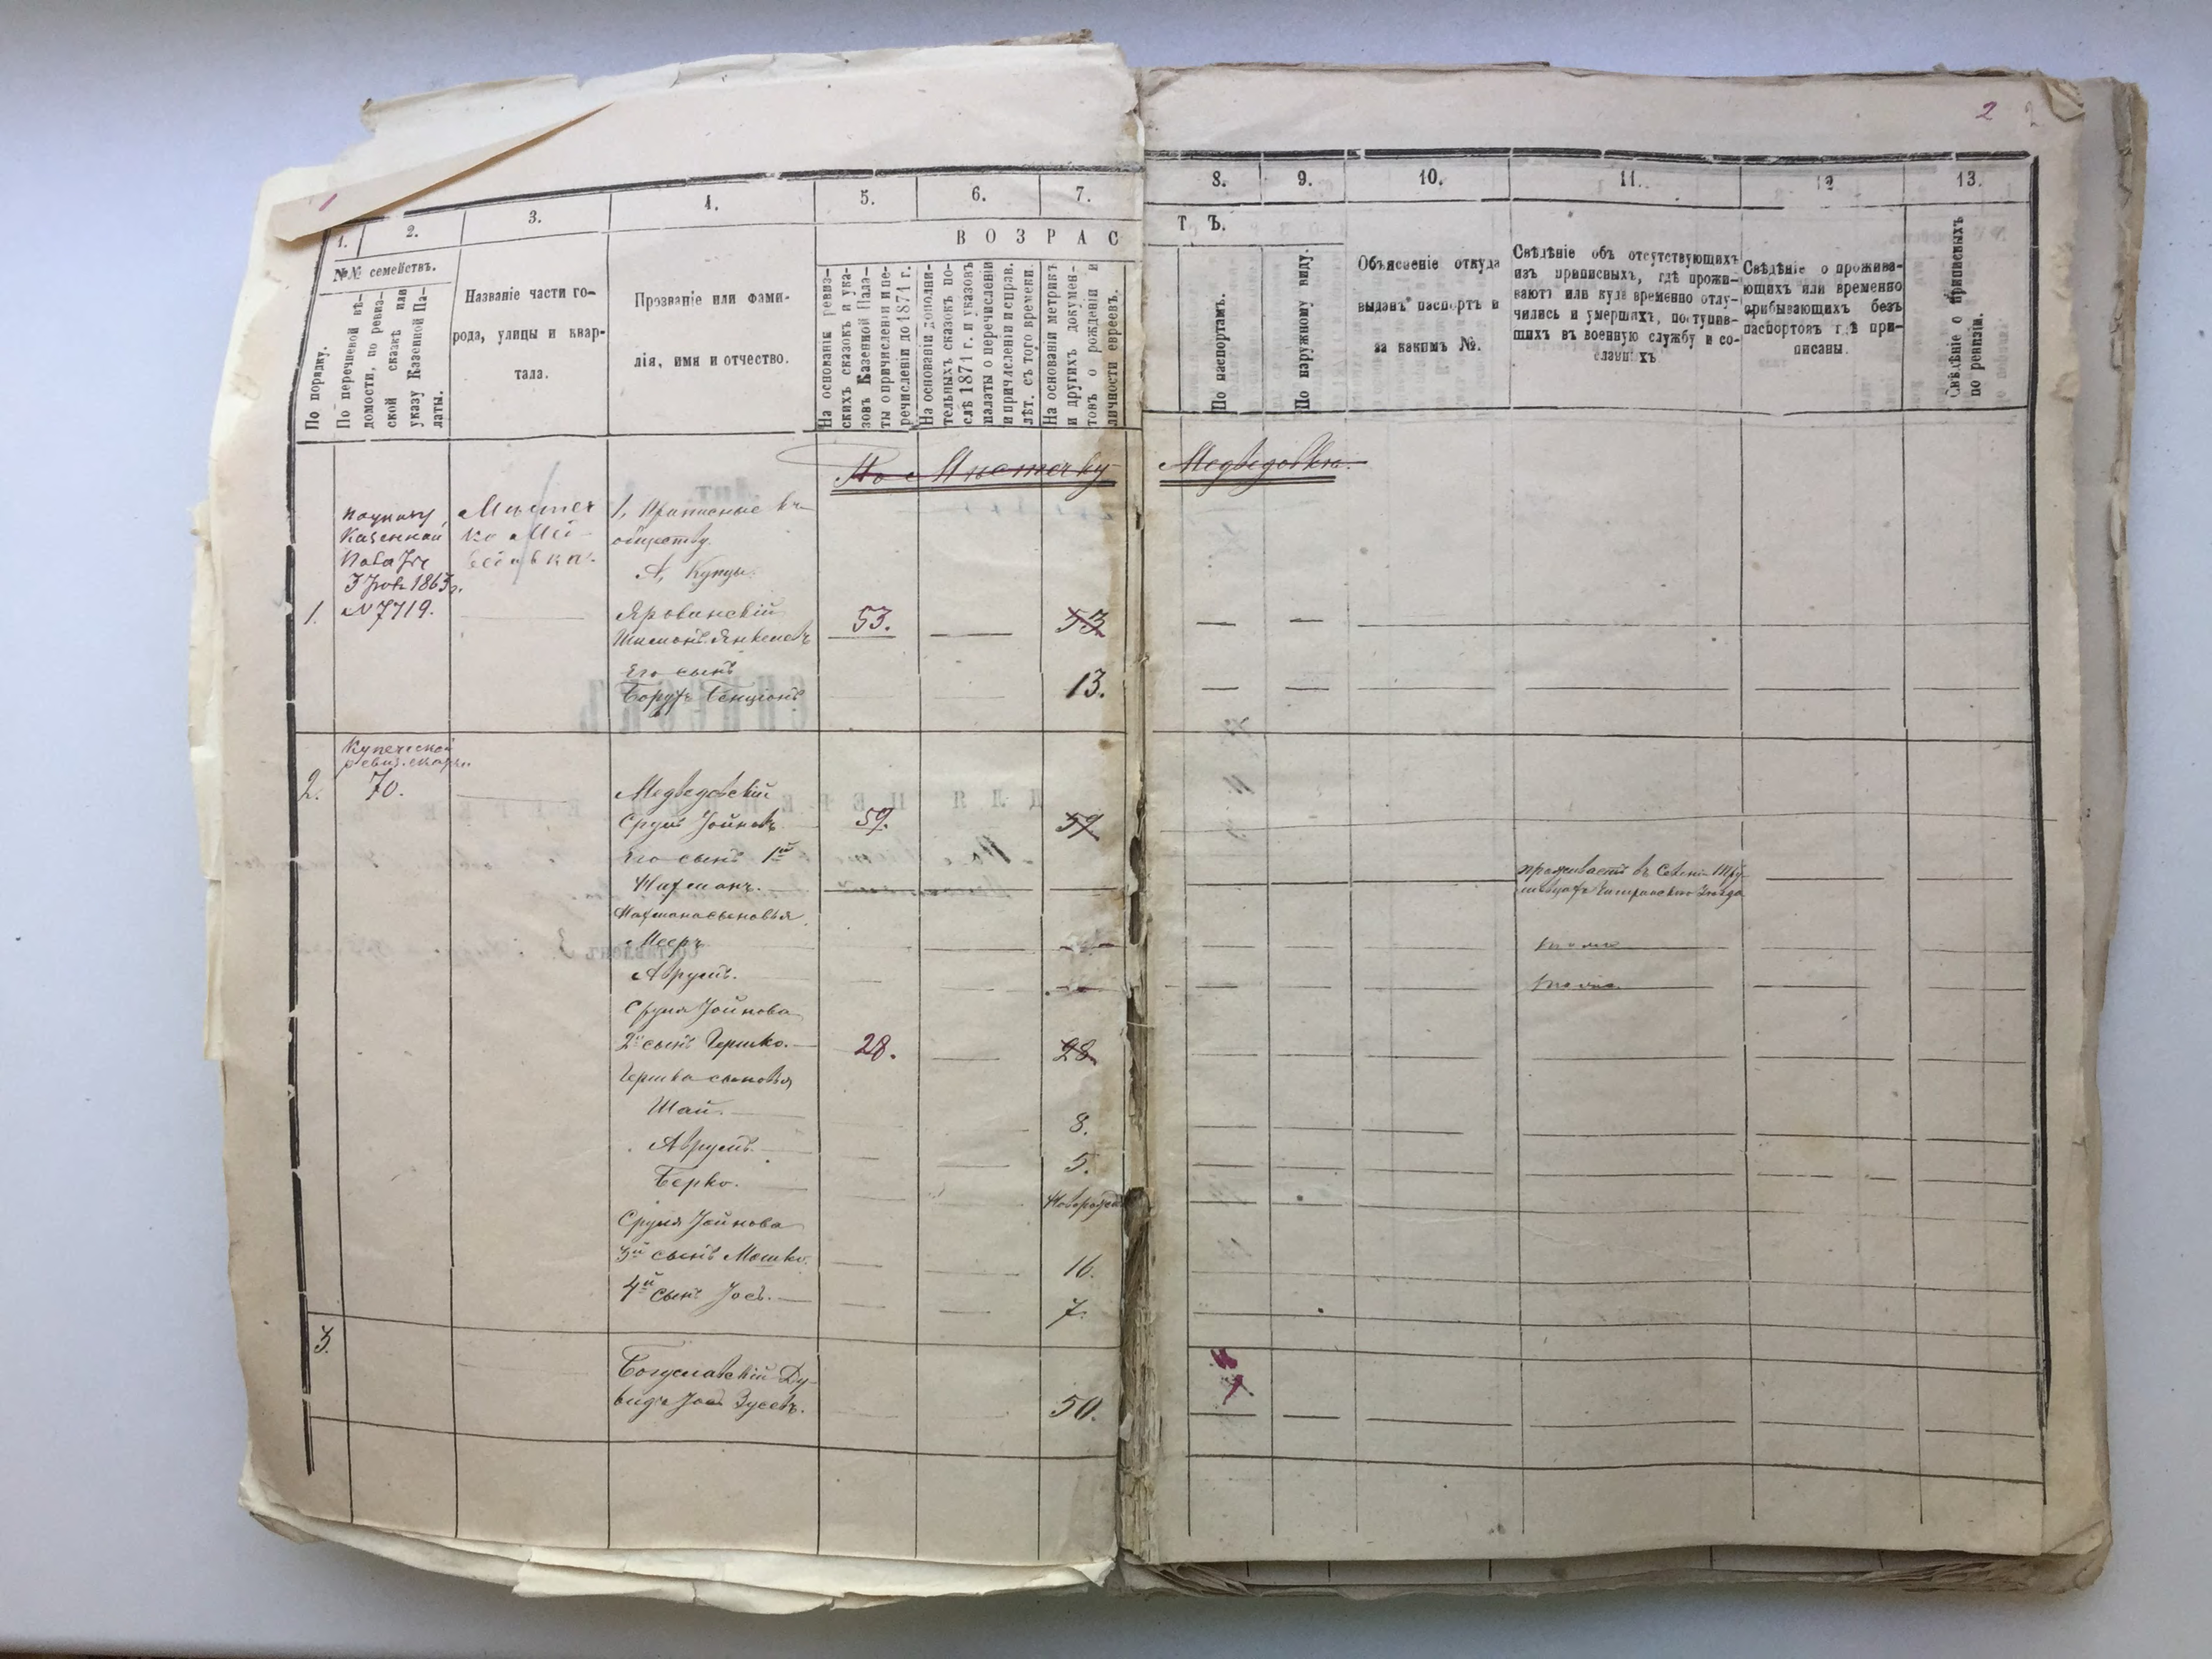 1
2
1.
2.
3.
4.
5.
6.
7.
8.
9.
10.
11.
12
13.
№№ семействъ.
В О З Р А С
Т Ъ.
По порядку.
По перечневой вѣ-
домости, по ревиз-
ской сказкѣ или
указу Казенной Па-
латы.
Названіе части го-
рода, улицы и квар-
тала.
Прозваніе или фами-
лія, имя и отчество.
На основаніи ревиз-
скихъ сказокъ и ука-
зовъ Казенной Пала-
ты о причисленіи и пе-
речисленіи до 1871 г.
На основаніи дополни-
тельныхъ сказокъ по-
слѣ 1871 г. и указовъ
палаты о перечисленіи
и причисленіи и справ.
лѣт. съ того времени.
На основаніи метрикъ
и другихъ докумен-
товъ о рожденіи и
личности евреевъ.
По паспортамъ.
По наружному виду.
Объясненіе откуда
выданъ паспортъ и
за какимъ №.
Свѣдѣніе объ отсутствующихъ
изъ приписныхъ, гдѣ прожи-
ваютъ или куда временно отлу-
чились и умершихъ, поступив-
шихъ въ военную службу и со-
сланныхъ
Свѣдѣніе о прожива-
ющихъ или временно
прибывающихъ безъ
паспортовъ гдѣ при-
писаны.
Свѣдѣніе о приписныхъ
по ревизіи.
По Мѣстечку Медведовкѣ.
По указу
Казенной
Палаты
1863 г.
№ 7719.
Мѣстеч
ко Мед-
ведовка.
1, Приписные къ
обществу.
А, Купцы.
1.
Яровинскій
Шимонъ Янкелевъ
53.
53
Его сынъ
Борухъ Бенціонъ
13.
Купеческой
ревиз. сказки
2.
70.
Медведовскій
Сруль Іойновъ
59.
59
Его сынъ 1й
Нахманъ.
проживаетъ въ
Чигиринскаго Уѣзда
Нахмана сыновья
Мееръ
тоже
Аврумъ.
тоже
Сруля Іойнова
2й сынъ Гершко.
28.
28
Гершка сыновья
Шай.
8.
Аврумъ.
5.
Берко.
Новорожд.
Сруля Іойнова
3й сынъ Мошко.
16.
4й сынъ Іось.
7.
3.
Богуславскій Ду-
видъ Іось Зусевъ.
50.